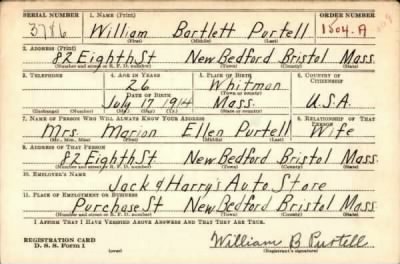 SERIAL NUMBER 1. NAME (Print) ORDER NUMBER
3786 William Bartlett Purtell 1504-A
(First) (Middle) (Last)
2. ADDRESS (Print)
82 Eighth St New Bedford Bristol Mass.
(Number and street or R. F. D. number) (Town) (County) (State)
3. TELEPHONE 4. AGE IN YEARS 5. PLACE OF BIRTH 6. COUNTRY OF CITIZENSHIP
26 Whitman
DATE OF BIRTH (Town or county)
July 17 1914 Mass. U.S.A.
(Exchange) (Number) (Mo.) (Day) (Yr.) (State or country)
7. NAME OF PERSON WHO WILL ALWAYS KNOW YOUR ADDRESS 8. RELATIONSHIP OF THAT PERSON
Mrs. Marion Ellen Purtell Wife
(Mr., Mrs., Miss) (First) (Middle) (Last)
9. ADDRESS OF THAT PERSON
82 Eighth St New Bedford Bristol Mass.
(Number and street or R. F. D. number) (Town) (County) (State)
10. EMPLOYER'S NAME
Jack & Harry's Auto Store
11. PLACE OF EMPLOYMENT OR BUSINESS
Purchase St New Bedford Bristol Mass
(Number and street or R. F. D. number) (Town) (County) (State)
I AFFIRM THAT I HAVE VERIFIED ABOVE ANSWERS AND THAT THEY ARE TRUE.
REGISTRATION CARD
D. S. S. Form 1 (over) William B Purtell
(Registrant's signature)